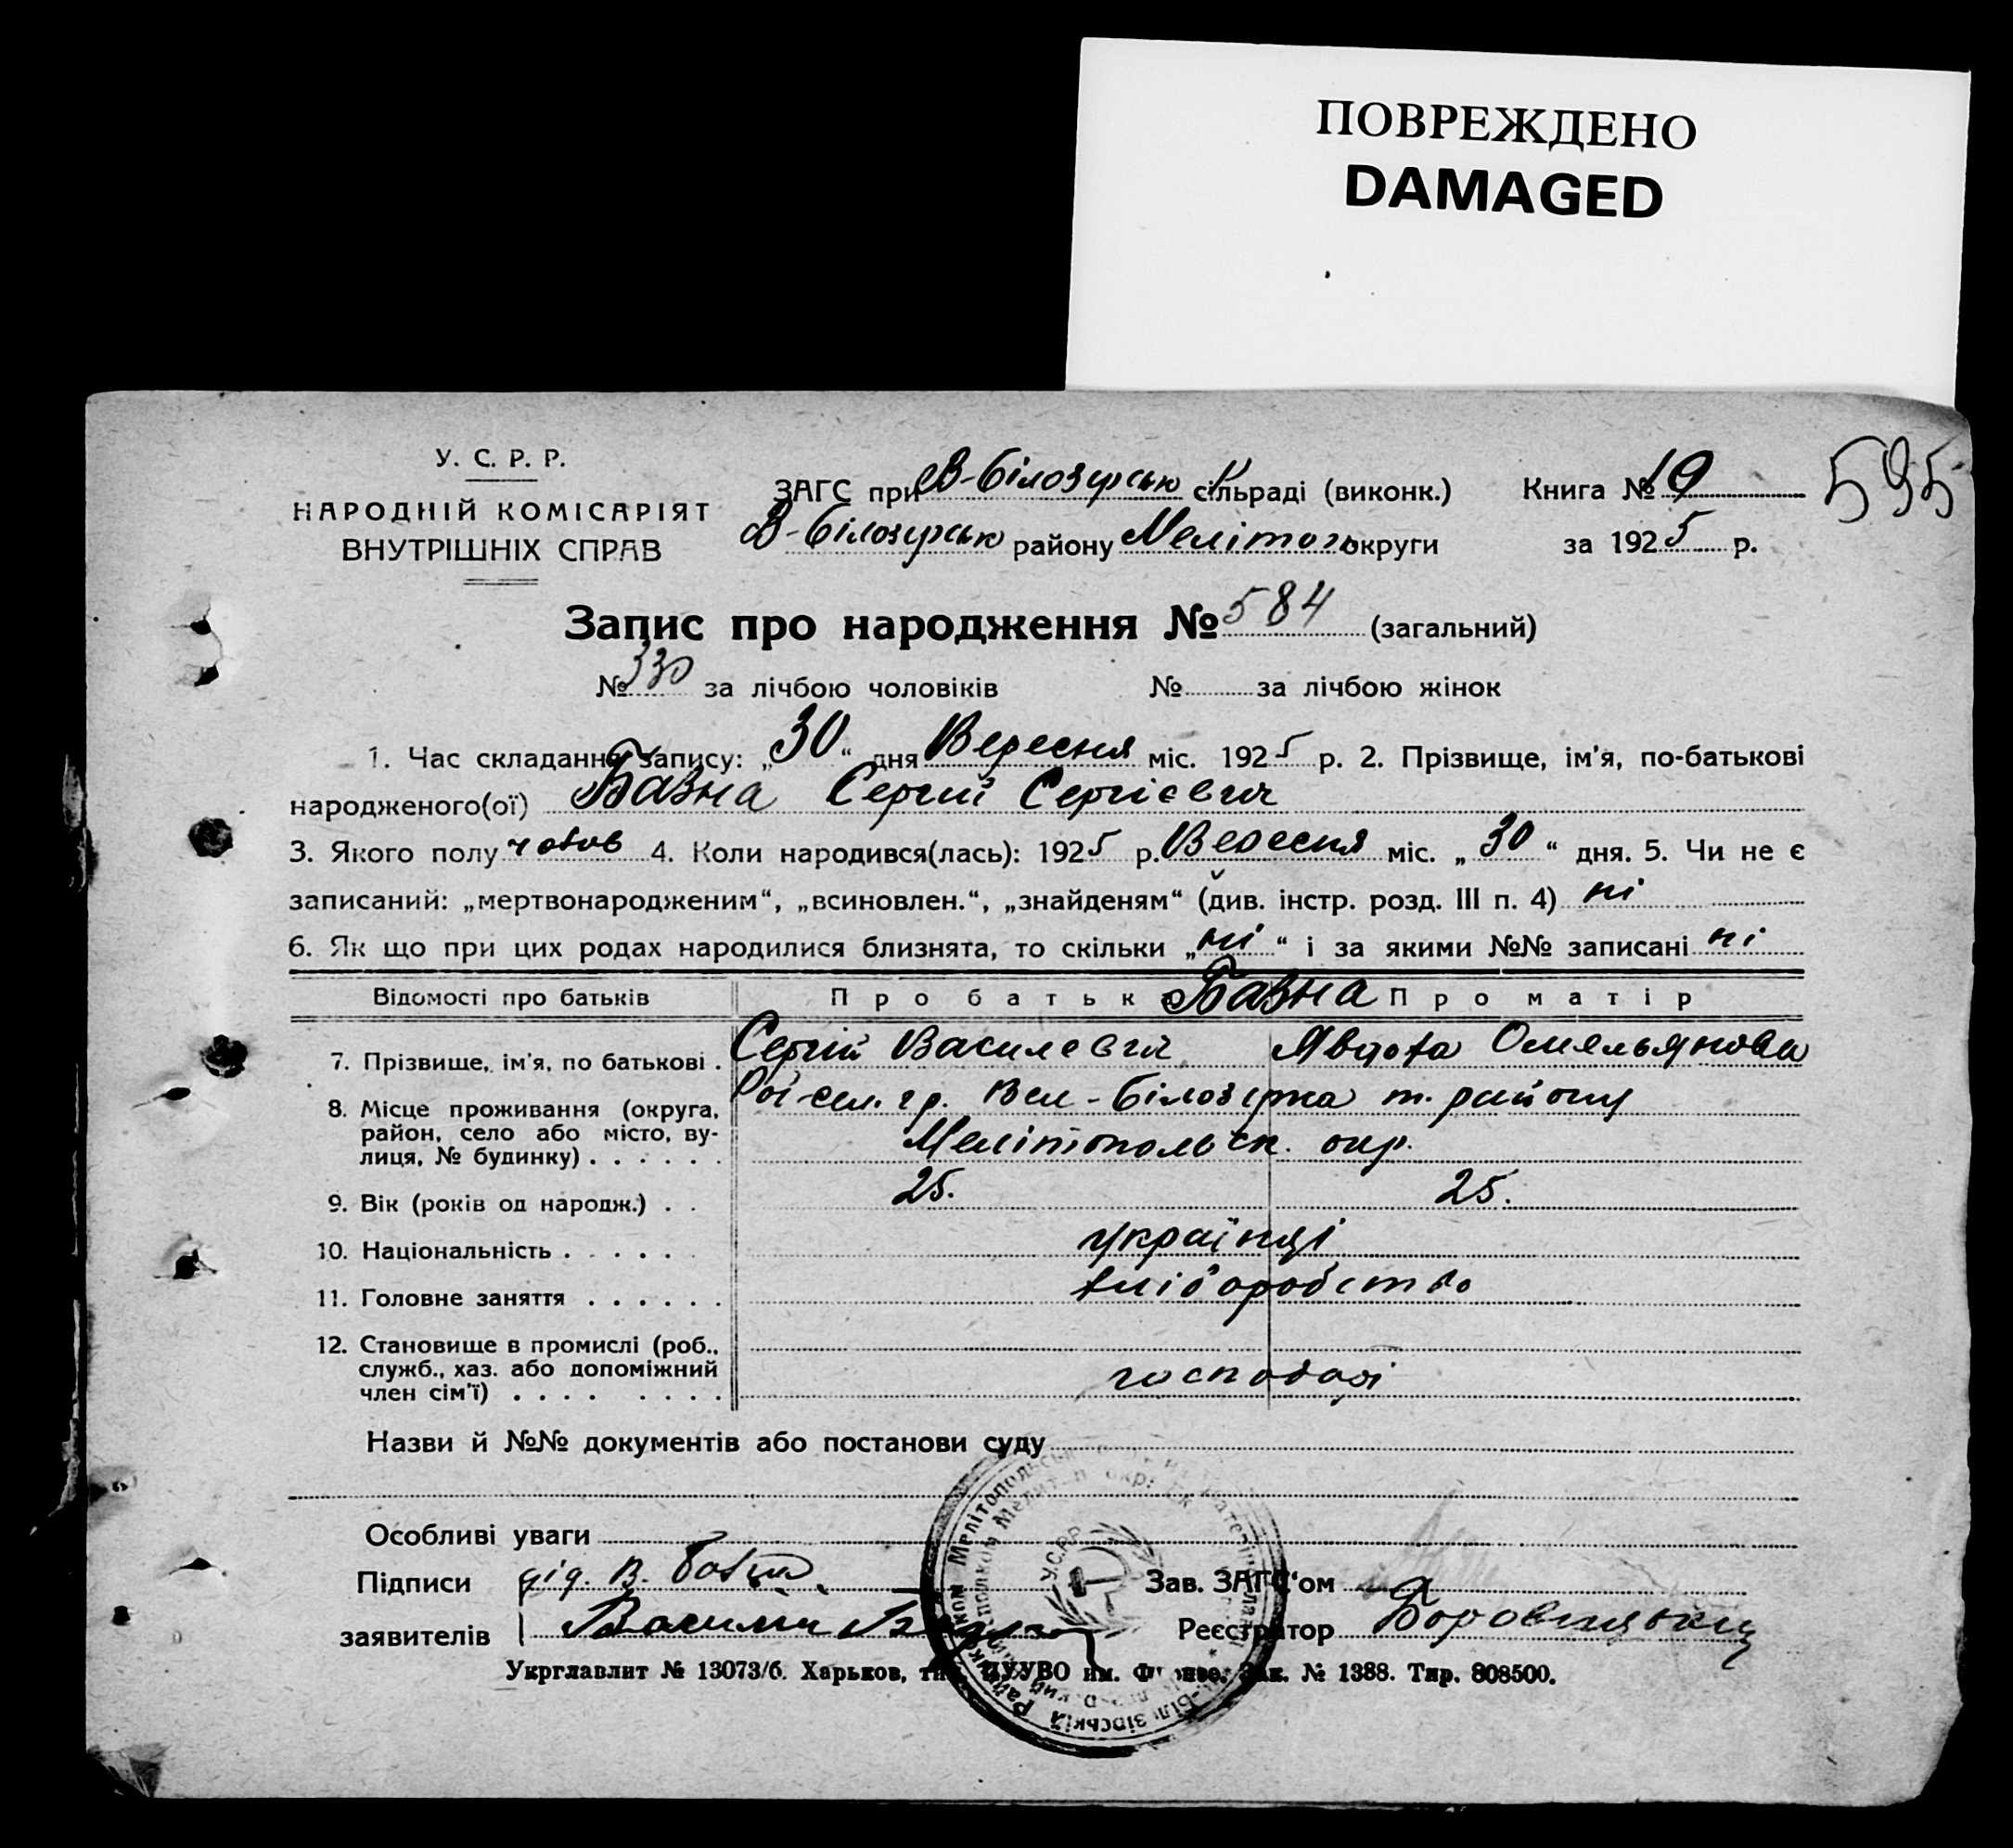 ПОВРЕЖДЕНО
DAMAGED
У. С. Р. Р.
НАРОДНІЙ КОМІСАРІЯТ
ВНУТРІШНІХ СПРАВ
ЗАГС при В-Білозерськ сільраді (виконк.)
В-Білозерськ району Мелітоп округи
Книга № 19
за 1925 р.
595
Запис про народження № 584 (загальний)
№ 330 за лічбою чоловіків № за лічбою жінок
1. Час складання запису: „30“ дня Вересня міс. 1925 р. 2. Прізвище, ім'я, по-батькові
народженого(ої) Бавна Сергій Сергієвич
3. Якого полу чолов 4. Коли народився(лась): 1925 р. Вересня міс. „30“ дня. 5. Чи не є
записаний: „мертвонародженим“, „всиновлен.“, „знайденям“ (див. інстр. розд. III п. 4) ні
6. Як що при цих родах народилися близнята, то скільки „ні“ і за якими №№ записані ні
Відомості про батьків Про батька Бавна Про матір
7. Прізвище, ім'я, по батькові . Сергій Василевич Явдоха Омельянова
8. Місце проживання (округа, район, село або місто, вулиця, № будинку) . . . . . . сел. гр. Вел-Білозерка т. району
Мелітопольськ. окр.
9. Вік (років од народж.) . . 25. 25.
10. Національність . . . . . . українці
11. Головне заняття . . . . . . хліборобство
12. Становище в промислі (роб., служб., хаз. або допоміжний член сім'ї) . . . . . . . . господарі
Назви й №№ документів або постанови суду
Особливі уваги
Підписи дід. В.
заявителів Василь
Зав. ЗАГС'ом
Реєстратор
Укрглавлит № 13073/б. Харьков, тип. ПУУВО им. Фрунзе. Зак. № 1388. Тир. 808500.
У.С.Р.Р.